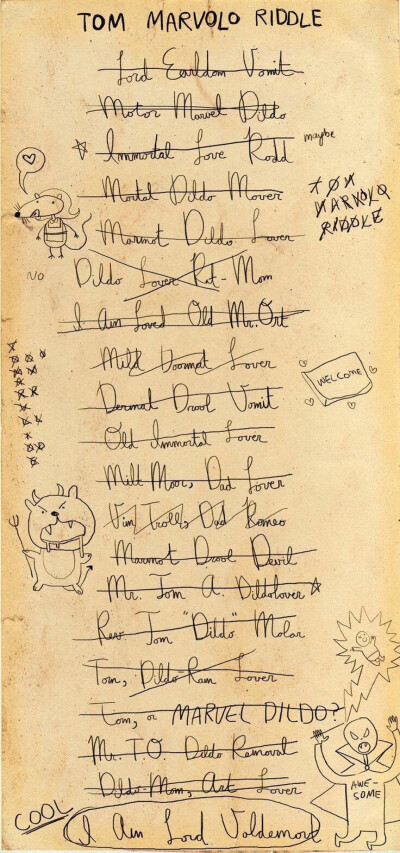 TOM MARVOLO RIDDLE
Lord Earldom Vomit
Motor Marvel Dildo
Immortal Love Rodd maybe
Mortal Dildo Mover
TOM
MARVOLO
RIDDLE
Marmot Dildo Lover
NO Dildo Lover Rat-Mom
I Am Loved Old Mr. Ort
Mild Doormat Lover
WELCOME
Dermal Drool Vomit
Old Immortal Lover
Milt Moor, Dad Lover
Vim Troll, Dad Romeo
Marmot Drool Devil
Mr. Tom A. Dildolover
Rev. Tom "Dildo" Molar
Tom, Dildo Ram Lover
Tom, or MARVEL DILDO?
Mr. T.O. Dildo Removal
Dildo-Mom, Art Lover
AWE-
SOME
COOL
I Am Lord Voldemort